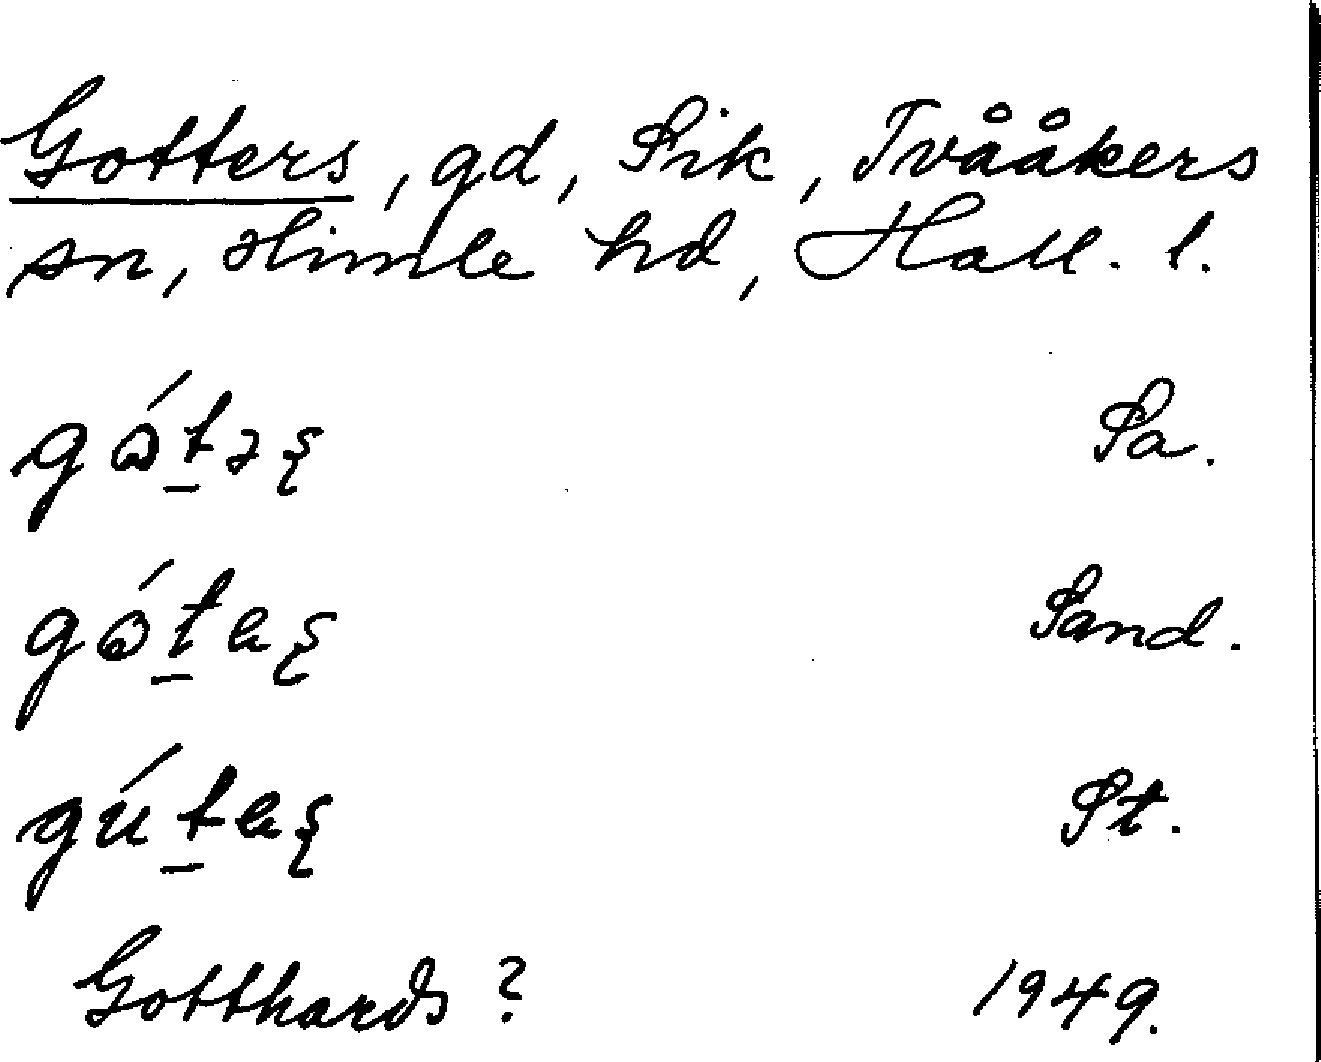 Gotters, gd, Sik, Tvååkers
sn, Himle hd, Hall. l.
gɔ́t̲əʂ Sa.
gɔ́t̲aʂ Sand.
gút̲aʂ St.
Gotthards? 1949.